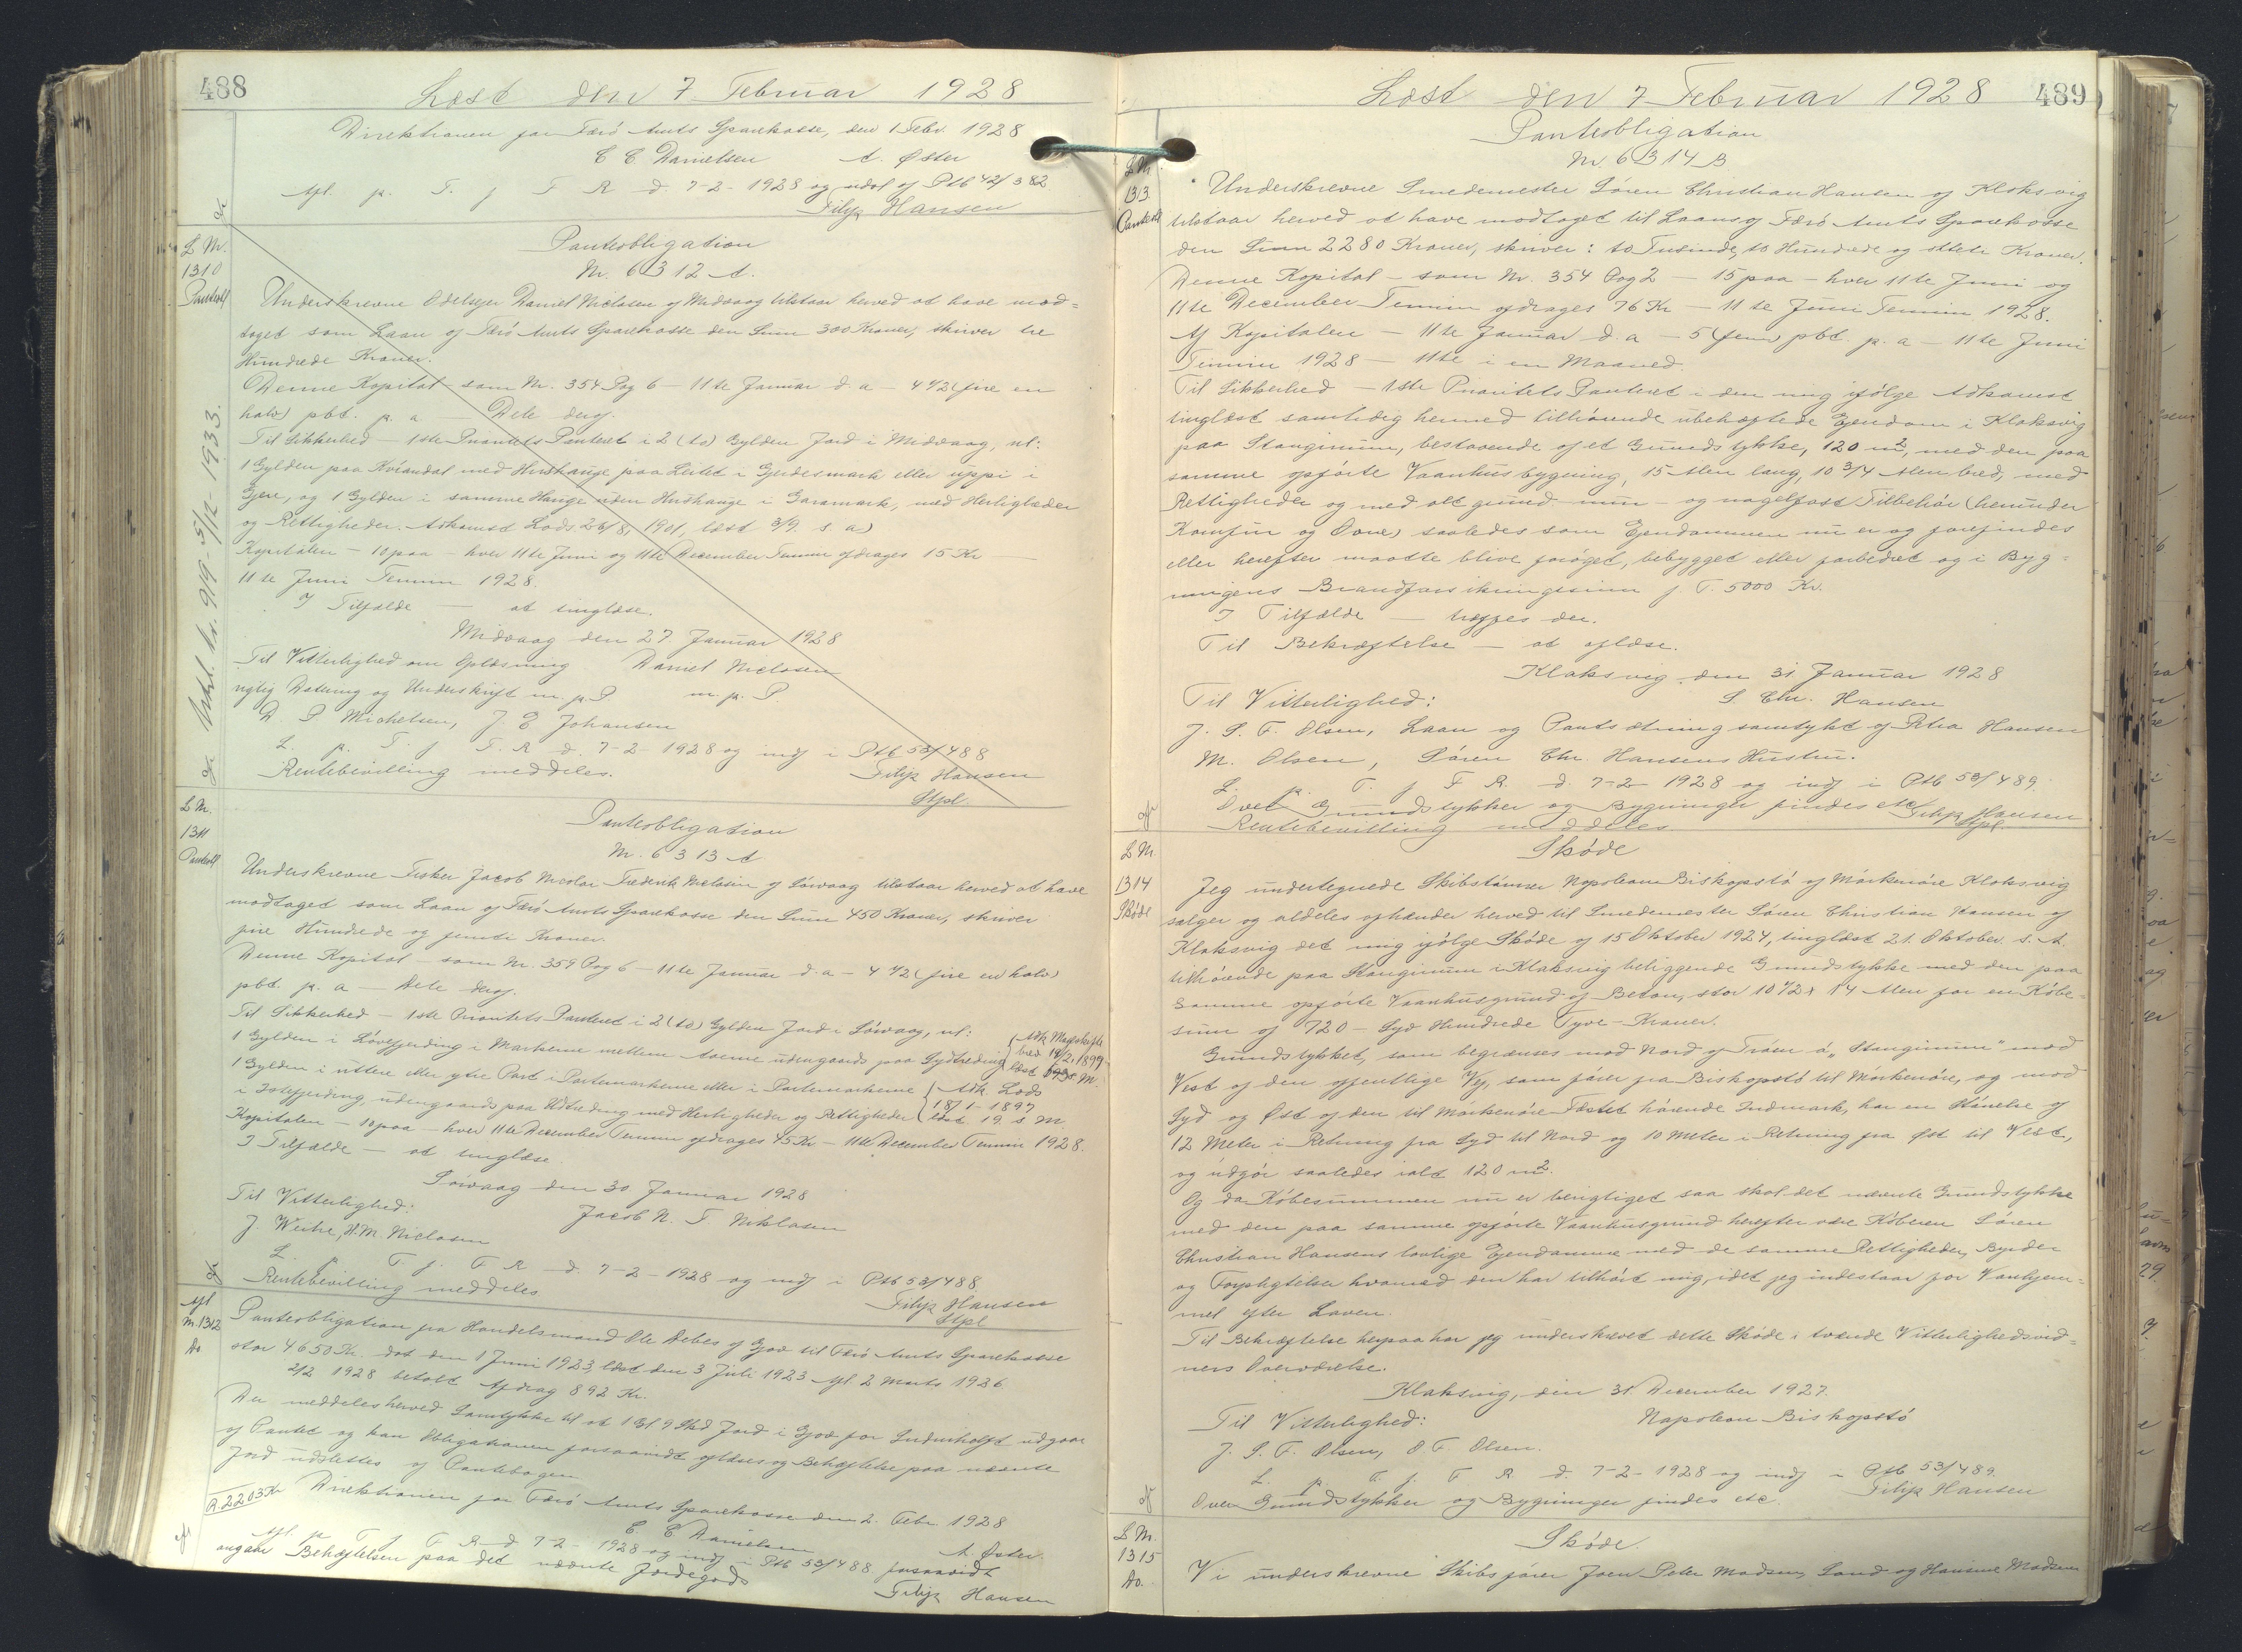 488
Læst den 7 Februar 1928
Direktionen for Færø Amts Sparekasse, den 1 Febr. 1928
C C Danielsen A. Øster
Afl. p. T. f F R d. 7-2-1928 og udsl af Ptb 42/382
Filip Hansen
L Nr.
1310
Panteobl
Udsl. kr. 9/9-5/12-1933.
Panteobligation
Nr. 6312 A.
Underskrevne Odelsejer Daniel Niclasen af Midvaag tilstaar herved at have mod=
taget som Laan af Færø Amts Sparekasse den Sum 300 Kroner, skriver tre
Hundrede Kroner.
Denne Kapital - som Nr. 354 Pag 6 - 11te Januar d. a - 4 1/2 (fire en
halv) pCt. p. a - Dele deraf.
Til Sikkerhed - 1ste Prioritets Panteret i 2 (to) Gylden Jord i Midvaag, nl:
1 Gylden paa Kvíandal med Hushauge paa Leitet i Gjerdesmark eller uppi i
Gjere, og 1 Gylden i samme Hauge uden Hushauge i Garamark, med Herligheder
og Rettigheder. Adkomst Lods 26/8 1901, læst 3/9 s. a)
Kapitalen - 10 paa - hver 11te Juni og 11te December Termin afdrages 15 Kr -
11te Juni Termin 1928.
I Tilfælde - at tinglæse.
Midvaag den 27. Januar 1928
Til Vitterlighed om Oplæsning Daniel Niclasen
rigtig Datering og Underskrift m. p. P m. p. P.
D. P. Michelsen, J. E Johansen
L. p. T. f. F. R d. 7-2-1928 og indf i Ptb 53/488
Rentebevilling meddeles. Filip Hansen
Stpl.
L Nr.
1311
Panteobl
Panteobligation
Nr. 6313 A
Underskrevne Fisker Jacob Nicolai Frederik Niclasen af Sørvaag tilstaar herved at have
modtaget som Laan af Færø Amts Sparekasse den Sum 450 Kroner, skriver
fire Hundrede og femti Kroner.
Denne Kapital - som Nr. 359 Pag 6 - 11te Januar d. a - 4 1/2 (fire en halv)
pCt. p. a - Dele deraf.
Til Sikkerhed - 1ste Prioritets Panteret i 2 (to) Gylden Jord i Sørvaag, nl:
1 Gylden i Løvefjerding i Markerne mellem Aaerne udengaards paa Sydtræding { Adk Mageskifte
brev 14/2-1899
1 Gylden i uttere eller ytre Part i Partemarkerne eller i Partemarkerne { Adk. Lods
i Istefjerding, udengaards paa Udtræding med Herligheder og Rettigheder { 18/1-1897
læst 19. s M
Kapitalen - 10 paa - hver 11te December Termin afdrages 45 Kr - 11te December Termin 1928.
I Tilfælde - at tinglæse
Sørvaag den 30 Januar 1928
Til Vitterlighed: Jacob N. F. Niklasen
J. Weihe, H. M. Niclasen
L. p T. f. F R - d. 7-2-1928 og indf i Ptb 53/488
Rentebevilling meddeles Filip Hansen
Stpl
Afl
Nr. 1312
Do.
Panteobligation fra Handelsmand Ole Debes af Gjov til Færø Amts Sparekasse
stor 4650 Kr. dat den 1 Juni 1923, læst den 3 Juli 1923 Afl 2 Marts 1926.
2/2 1928 betalt Afdrag 892 Kr.
Der meddeles herved Samtykke til at 1 Gl 9 Skd Jord i Gjov for Indenholft udgaar
af Pantet og kan Obligationen forsaavidt aflæses og Behæftelse paa nævnte
Jord udslettes af Pantebogen
R 2203 Kr
Direktionen for Færø Amts Sparekasse den 2. Febr. 1928
C. C Danielsen A. Øster.
Afl. p T. f F R - d 7-2-1928 og indf i Ptb 53/488 forsaavidt
angaar Behæftelsen paa det nævnte Jordegods
Filip Hansen
489
Læst den 7 Februar 1928
L Nr.
1313
Panteobl
Panteobligation
Nr 6314 B
Underskrevne Smedemester Søren Christian Hansen af Klaksvig
tilstaar herved at have modtaget til Laans af Færø Amts Sparekasse
den Sum 2280 Kroner, skriver: to Tusinde, to Hundrede og ottete Kroner.
Denne Kapital - som Nr. 354 Pag 2 - 15 paa - hver 11te Juni og
11te December Termin afdrages 76 Kr - 11te Juni Termin 1928.
Af Kapitalen - 11te Januar d. a - 5 (fem) pCt. p. a - 11te Juni
Termin 1928 - 11te i en Maaned.
Til Sikkerhed - 1ste Prioritets Panteret i den mig ifølge Adkomst
tinglæst samtidig hermed tilhørende ubehæftede Ejendom i Klaksvig
paa Stanginum, bestaaende af et Grundstykke, 120 m2, med den paa
samme opførte Vaanhusbygning, 15 Alen lang, 10 3/4 Alen bred, med
Rettigheder og med alt grund- mur- og nagelfast Tilbehør (herunder
Komfur og Ovne) saaledes som Ejendommen nu er og forefindes
eller herefter maatte blive forøget, bebygget eller forbedret og i Byg=
ningens Brandforsikringssum f. T. 5000 Kr.
I Tilfælde - træffes der.
Til Bekræftelse - at aflæse.
Klaksvig den 31 Januar 1928
Til Vitterlighed: S. Chr. Hansen
J. S. F. Olsen, Laan og Pantsætning samtykt af Petra Hansen
M. Olsen, Søren Chr. Hansens Hustru.
L. p. T. f F R. d. 7-2-1928 og indf i Ptb 53/489.
Over Grundstykker og Bygninger findes etc Filip Hansen
Rentebevilling meddeles Stpl
L Nr.
1314
Skøde
Skøde
Jeg undertegnede Skibstømrer Napoleon Biskopstø af Mórkenóre Klaksvig
sælger og aldeles afhænder herved til Smedemester Søren Christian Hansen af
Klaksvig det mig ifølge Skøde af 15 Oktober 1924, tinglæst 21. Oktober s. A.
tilhørende paa Stanginum i Klaksvig beliggende Grundstykke med den paa
samme opførte Vaanhusgrund af Beton, stor 10 1/2 x 14 Alen for en Købe=
sum af 720 - Syv Hundrede Tyve - Kroner.
Grundstykket, som begrænses mod Nord af Trøen á "Stanginum" mod
Vest af den offentlige Vej, som fører fra Biskopstø til Mórkenóre, og mod
Syd og Øst af den til Mórkenóre Fæstet hørende Indmark, har en Størrelse af
12 Meter i Retning fra Syd til Nord og 10 Meter i Retning fra Øst til Vest,
og udgør saaledes ialt 120 m2.
Og da Købesummen nu er berigtiget saa skal det nævnte Grundstykke
med den paa samme opførte Vaanhusgrund herefter være Køberen Søren
Christian Hansens lovlige Ejendomme med de samme Rettigheder, Byrder
og Forpligtelser hvormed den har tilhørt mig, idet jeg indestaar for Vanhjem=
mel efter Loven.
Til Bekræftelse herpaa har jeg underskrevet dette Skøde i tvende Vitterlighedsvid=
ners Overværelse.
Klaksvig, den 31. December 1927.
Til Vitterlighed: Napoleon Biskopstø
J. S. F. Olsen, O. F. Olsen.
L. p. T. f. F R d. 7-2-1928 og indf i Ptb 53/489.
Over Grundstykker og Bygninger findes etc. Filip Hansen
L Nr.
1315
Do.
Skøde.
Vi underskrevne Skibsfører Joen Peter Madsen, Sand og Hansine Madsen